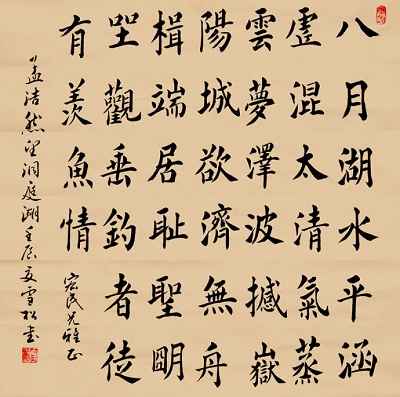 八月湖水平涵
虛混太清氣蒸
雲夢澤波撼嶽
陽城欲濟無舟
楫端居耻聖眀
坐觀垂釣者徒
有羨魚情
宏民兄雅正
孟浩然望洞庭湖壬辰夏雪松書